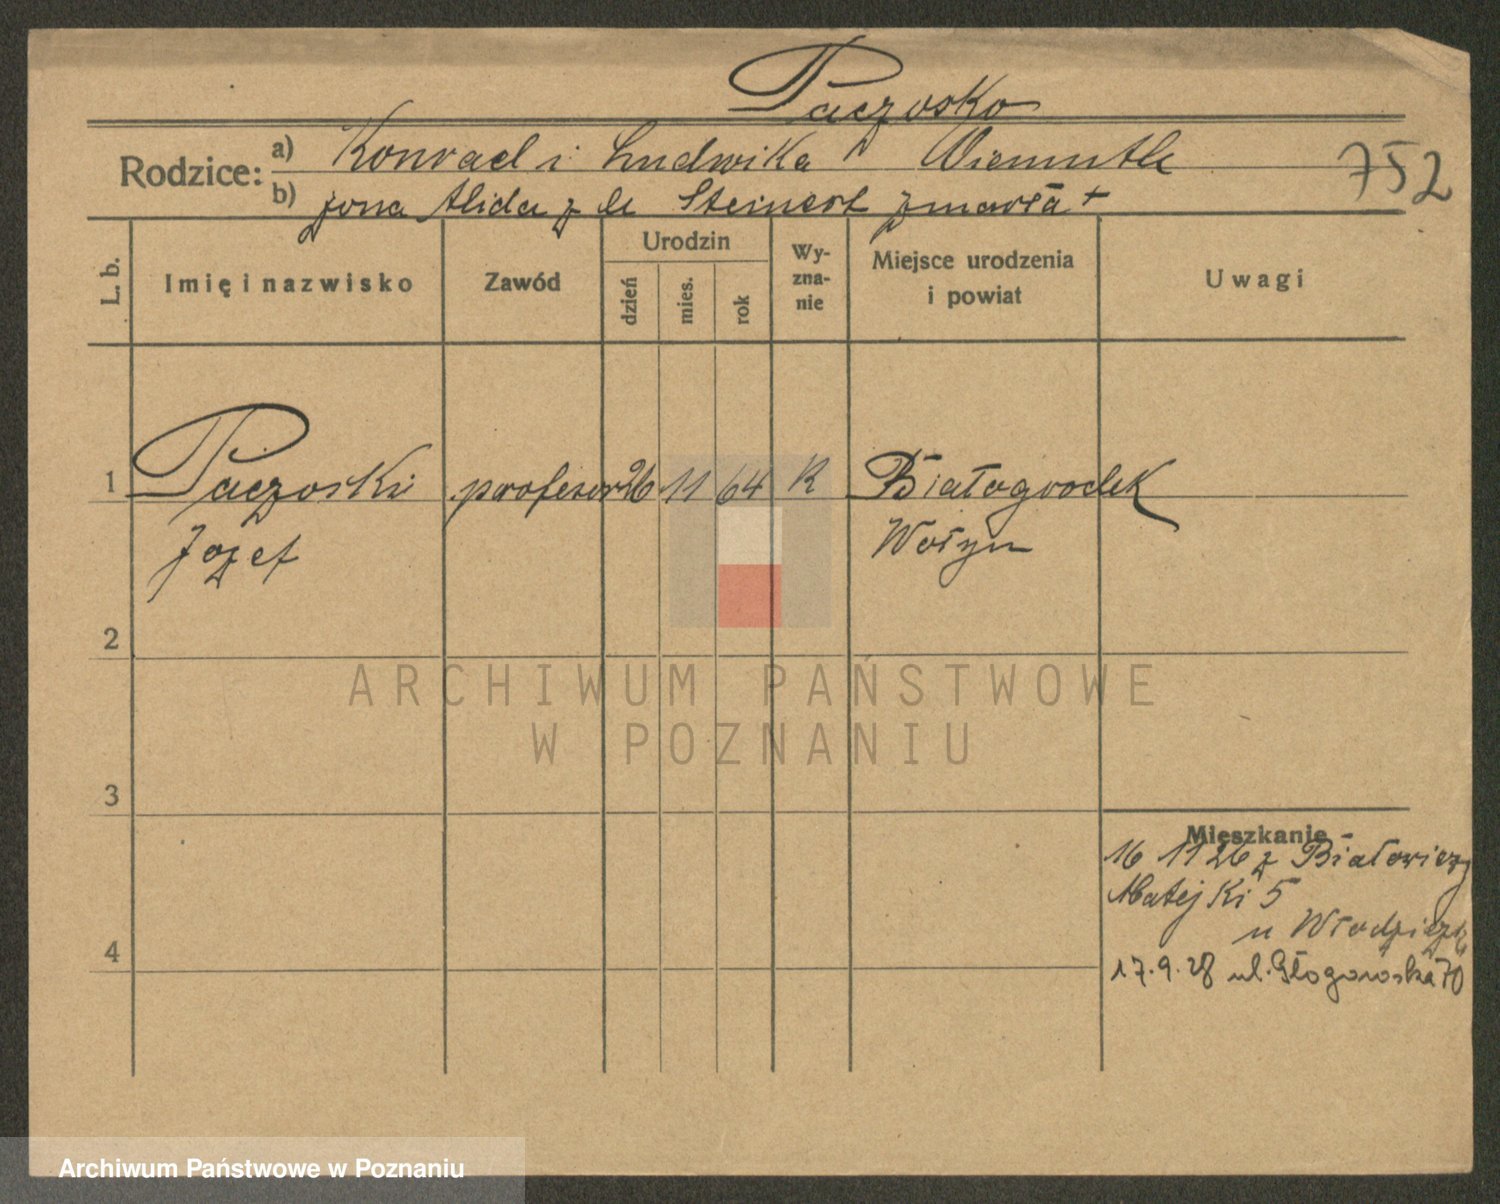 Paczosko
Rodzice: a) Konrad i Ludwika Wiemuth
b) żona Alida z d. Steinert zmarła +
752
L. b.
Imię i nazwisko
Zawód
Urodzin
dzień
mies.
rok
Wy-
zna-
nie
Miejsce urodzenia
i powiat
Uwagi
1 Paczoski profesor 26 11 64 R Białogrodek
Jozef Wołyn
2
3
4
Mieszkanie
16 11 26 z Białowieży
Matejki 5
u
17.9.28 ul. Głogowska 70
ARCHIWUM PAŃSTWOWE
W POZNANIU
Archiwum Państwowe w Poznaniu